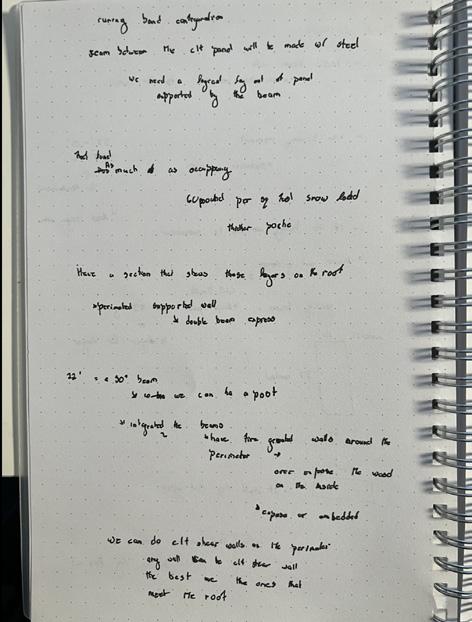 running bond configuration
seam between the clt panel will be made w/ steel
we need a logical lay out of panel
supported by the beam
As
much as occupancy
60 pound per sq foot snow load
thicker poche
Have a section that shows those layers on the roof
perimeter supported wall
double beam express
22' = a 30" beam
we can be a foot
integrated the beams
have fire grounded walls around the
perimeter →
over expose the wood
on the inside
expose or embedded
we can do clt shear walls on the perimeter
any wall to clt shear wall
the best are the ones that
meet the roof